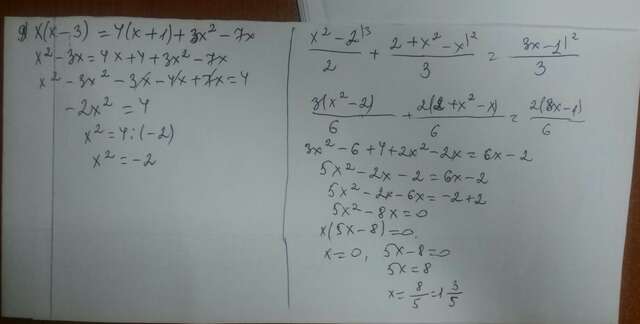 g) x(x-3) = 4(x+1)+3x²-7x
x²-3x=4x+4+3x²-7x
x²-3x²-3x-4x+7x=4
-2x²=4
x²=4:(-2)
x²=-2
(x²-2|³)/2 + (2+x²-x|²)/3 = (3x-1|²)/3
3(x²-2)/6 + 2(2+x²-x)/6 = 2(3x-1)/6
3x²-6+4+2x²-2x=6x-2
5x²-2x-2=6x-2
5x²-2x-6x=-2+2
5x²-8x=0
x(5x-8)=0.
x=0, 5x-8=0
5x=8
x=8/5=1 3/5